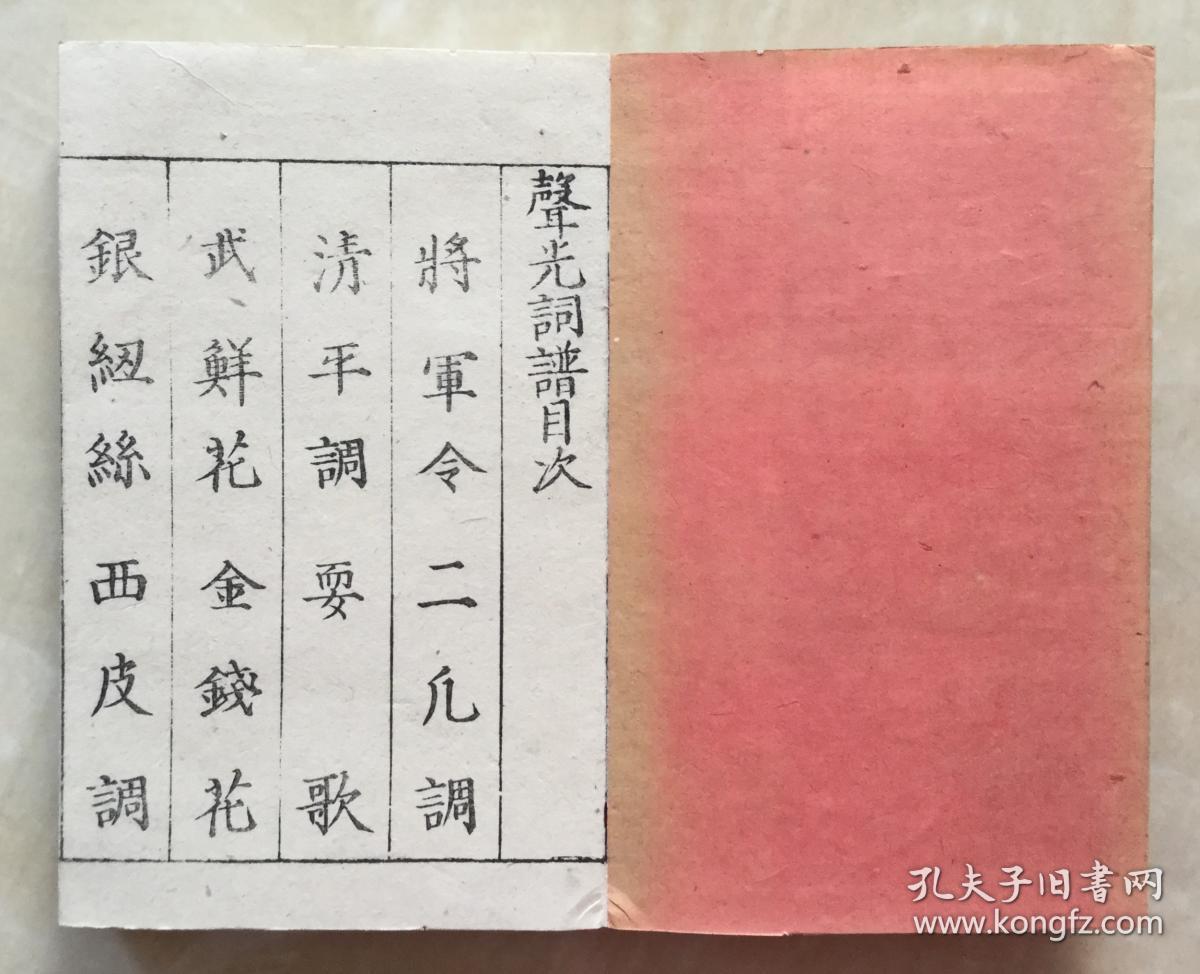 聲光詞譜目次
將軍令 二凡調
清平調 耍歌
武鮮花 金錢花
銀紐絲 西皮調
孔夫子旧書网
www.kongfz.com